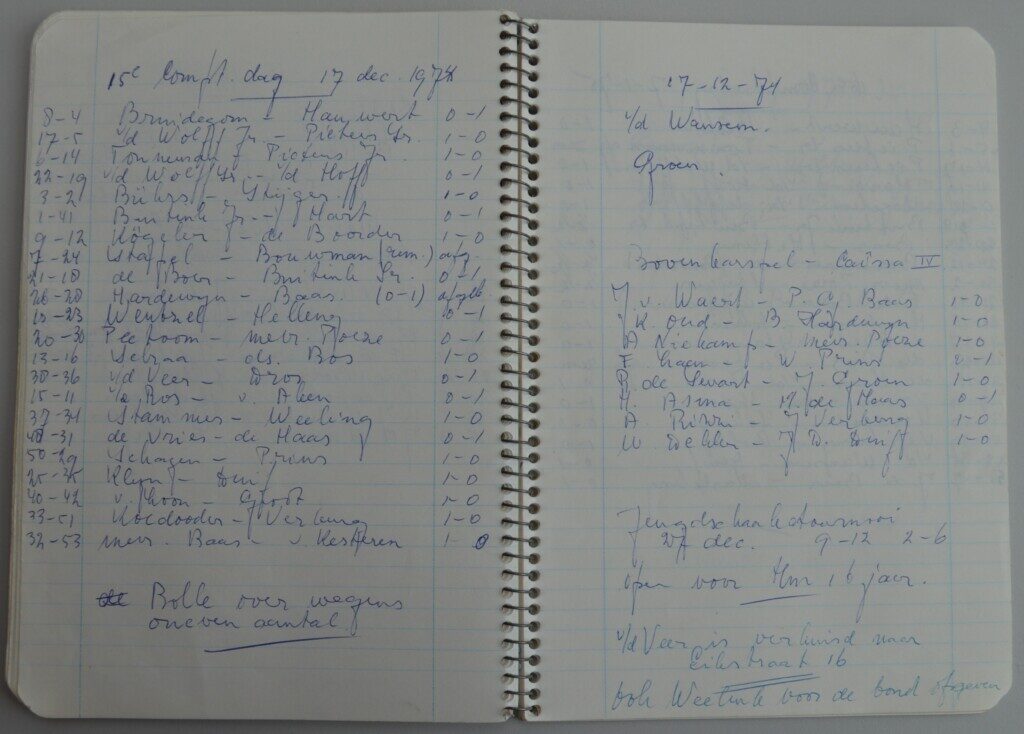 15e Compt. dag 17 dec. 1974
8-4 Bruidegom - Hauwert 0-1
17-5 v/d Wolff Jr. - Pieters Sr. 1-0
6-14 Tonneman - Pieters Jr. 1-0
22-19 v/d Wolff Sr. - v/d Hoff 0-1
3-2 Bührs - Strijger 1-0
1-41 Buitink Jr. - Hart 0-1
9-12 Kögeler - de Boorder 1-0
7-24 Stapel - Bouwman (rem.) afg.
21-18 de Boer - Buitink Sr. 0-1
26-28 Hardewyn - Baas (0-1) afgeb.
10-23 Wentzel - Helling 0-1
20-30 Peetoom - mevr. Poeze 0-1
13-16 Schaa - ds. Bos 1-0
38-36 v/d Veer - Dros 0-1
15-11 Ros - v. Aken 0-1
37-34 Stammes - Weeling 1-0
48-31 de Vries - de Haas 0-1
50-29 Schagen - Prins 1-0
25-35 Kleyn - 1-0
40-42 v. Schoon - Groot 1-0
33-51 Koedooder - Verburg 1-0
32-53 mevr. Baas - v. Kesteren 1-0
Bolle over wegens
oneven aantal
17-12-74
v/d Wansem.
Groen.
Bovenkarspel - Caïssa IV
J. v. Waert - P. C. Baas 1-0
J. K. Oud - B. Hardewyn 1-0
A Niekamp - mevr. Poeze 1-0
F. Laan - W. Prins 0-1
P. de Swart - J. Groen 1-0
H. Asma - M. de Haas 0-1
A. Rikki - J Verburg 1-0
W. Dekker - J W. 1-0
Jeugdschaaktournooi
27 dec. 9-12 2-6
open voor t/m 16 jaar.
v/d Veer is verhuisd naar
Eikstraat 16
ook Weelink voor de bond opgeven